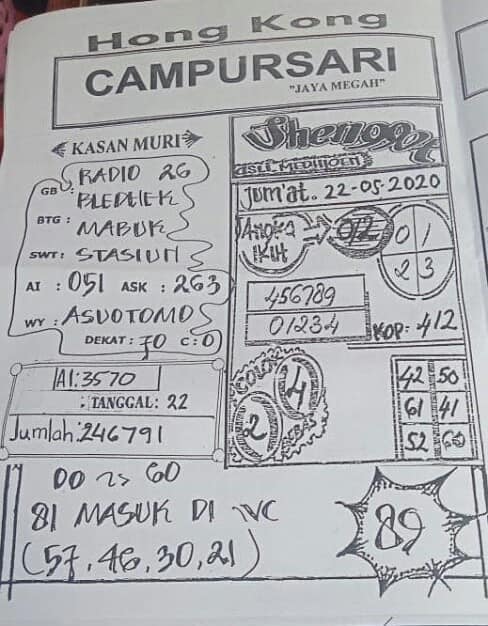 Hong Kong
CAMPURSARI
"JAYA MEGAH"
KASAN MURI
RADIO 26
GB : BLEDHEK
BTG : MABUK
SWT : STASIUN
AI : 051 ASK : 263
WY : ASUOTOMO
DEKAT : 70 C : 0
AI : 3570
: TANGGAL : 22
Jumlah : 246791
Shenopy
ASLI MEDIUOEN
Jum'at. 22-05-2020
ANGKA IKIH
012
0 1
2 3
456789
01234
KOP : 412
COLOK
2 4
42 50
61 41
52 60
DO 60
81 MASUK DI
(57, 46, 30, 21)
89